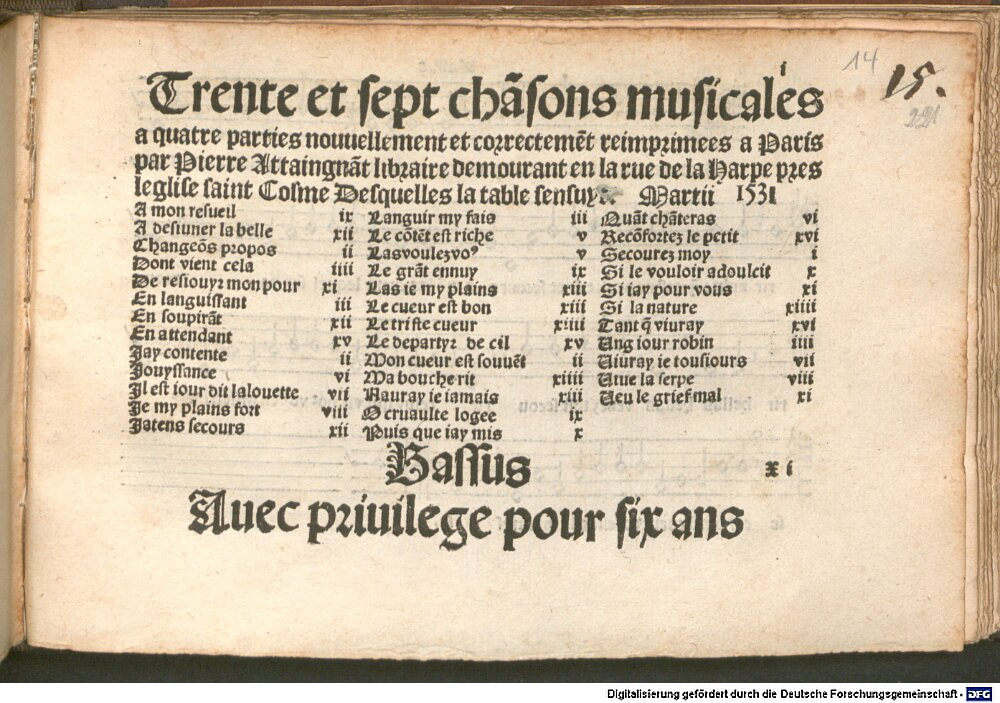 14 15.
221
i
Trente et sept chãsons musicales
a quatre parties nouuellement et correctemẽt reimprimees a Paris
par Pierre Attaingnãt libraire demourant en la rue de la Harpe pres
leglise saint Cosme Desquelles la table sensuyt Martii 1531
A mon resueil ix
A desiuner la belle xii
Changeõs propos ii
Dont vient cela iiii
De resiouyr mon pour xi
En languissant iii
En soupirãt xii
En attendant xv
Jay contente ii
Jouyssance vi
Il est iour dit lalouette vii
Je my plains fort viii
Jatens secours xii
Languir my fais iii
Le cõtẽt est riche v
Lasvoulezvoꝰ v
Le grãt ennuy ix
Las ie my plains xiii
Le cueur est bon xiii
Le triste cueur xiiii
Le departyr de cil xv
Mon cueur est souuẽt ii
Ma bouche rit xiiii
Mauray ie iamais xiii
O cruaulte logee ix
Puis que iay mis x
Quãt chãteras vi
Recõfortez le petit xvi
Secourez moy i
Si le vouloir adoulcit x
Si iay pour vous xi
Si la nature xiiii
Tant q̃ viuray xvi
Ung iour robin iiii
Uiuray ie tousiours vii
Uiue la serpe viii
Ueu le grief mal xi
Bassus
xi
Auec priuilege pour six ans
Digitalisierung gefördert durch die Deutsche Forschungsgemeinschaft - DFG